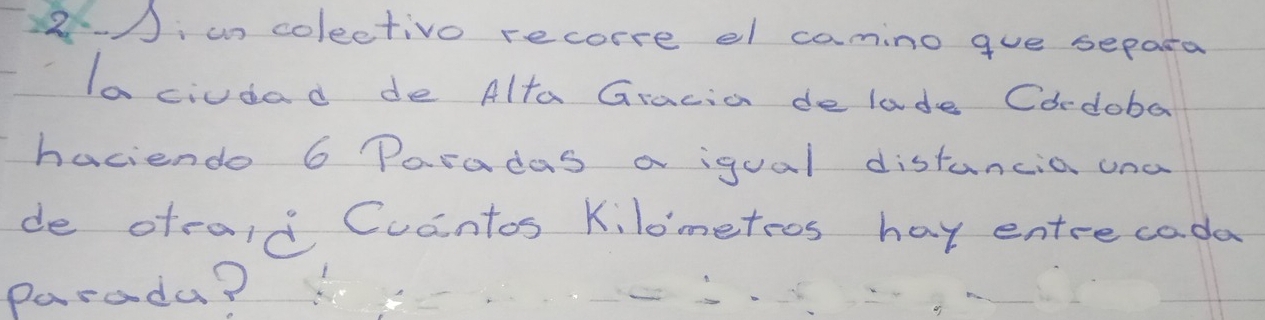 2-Si un colectivo recorre el camino que separa
la ciudad de Alta Gracia de lade Córdoba
haciendo 6 Paradas a igual distancia una
de otra, ¿ Cuántos Kilómetros hay entre cada
parada?